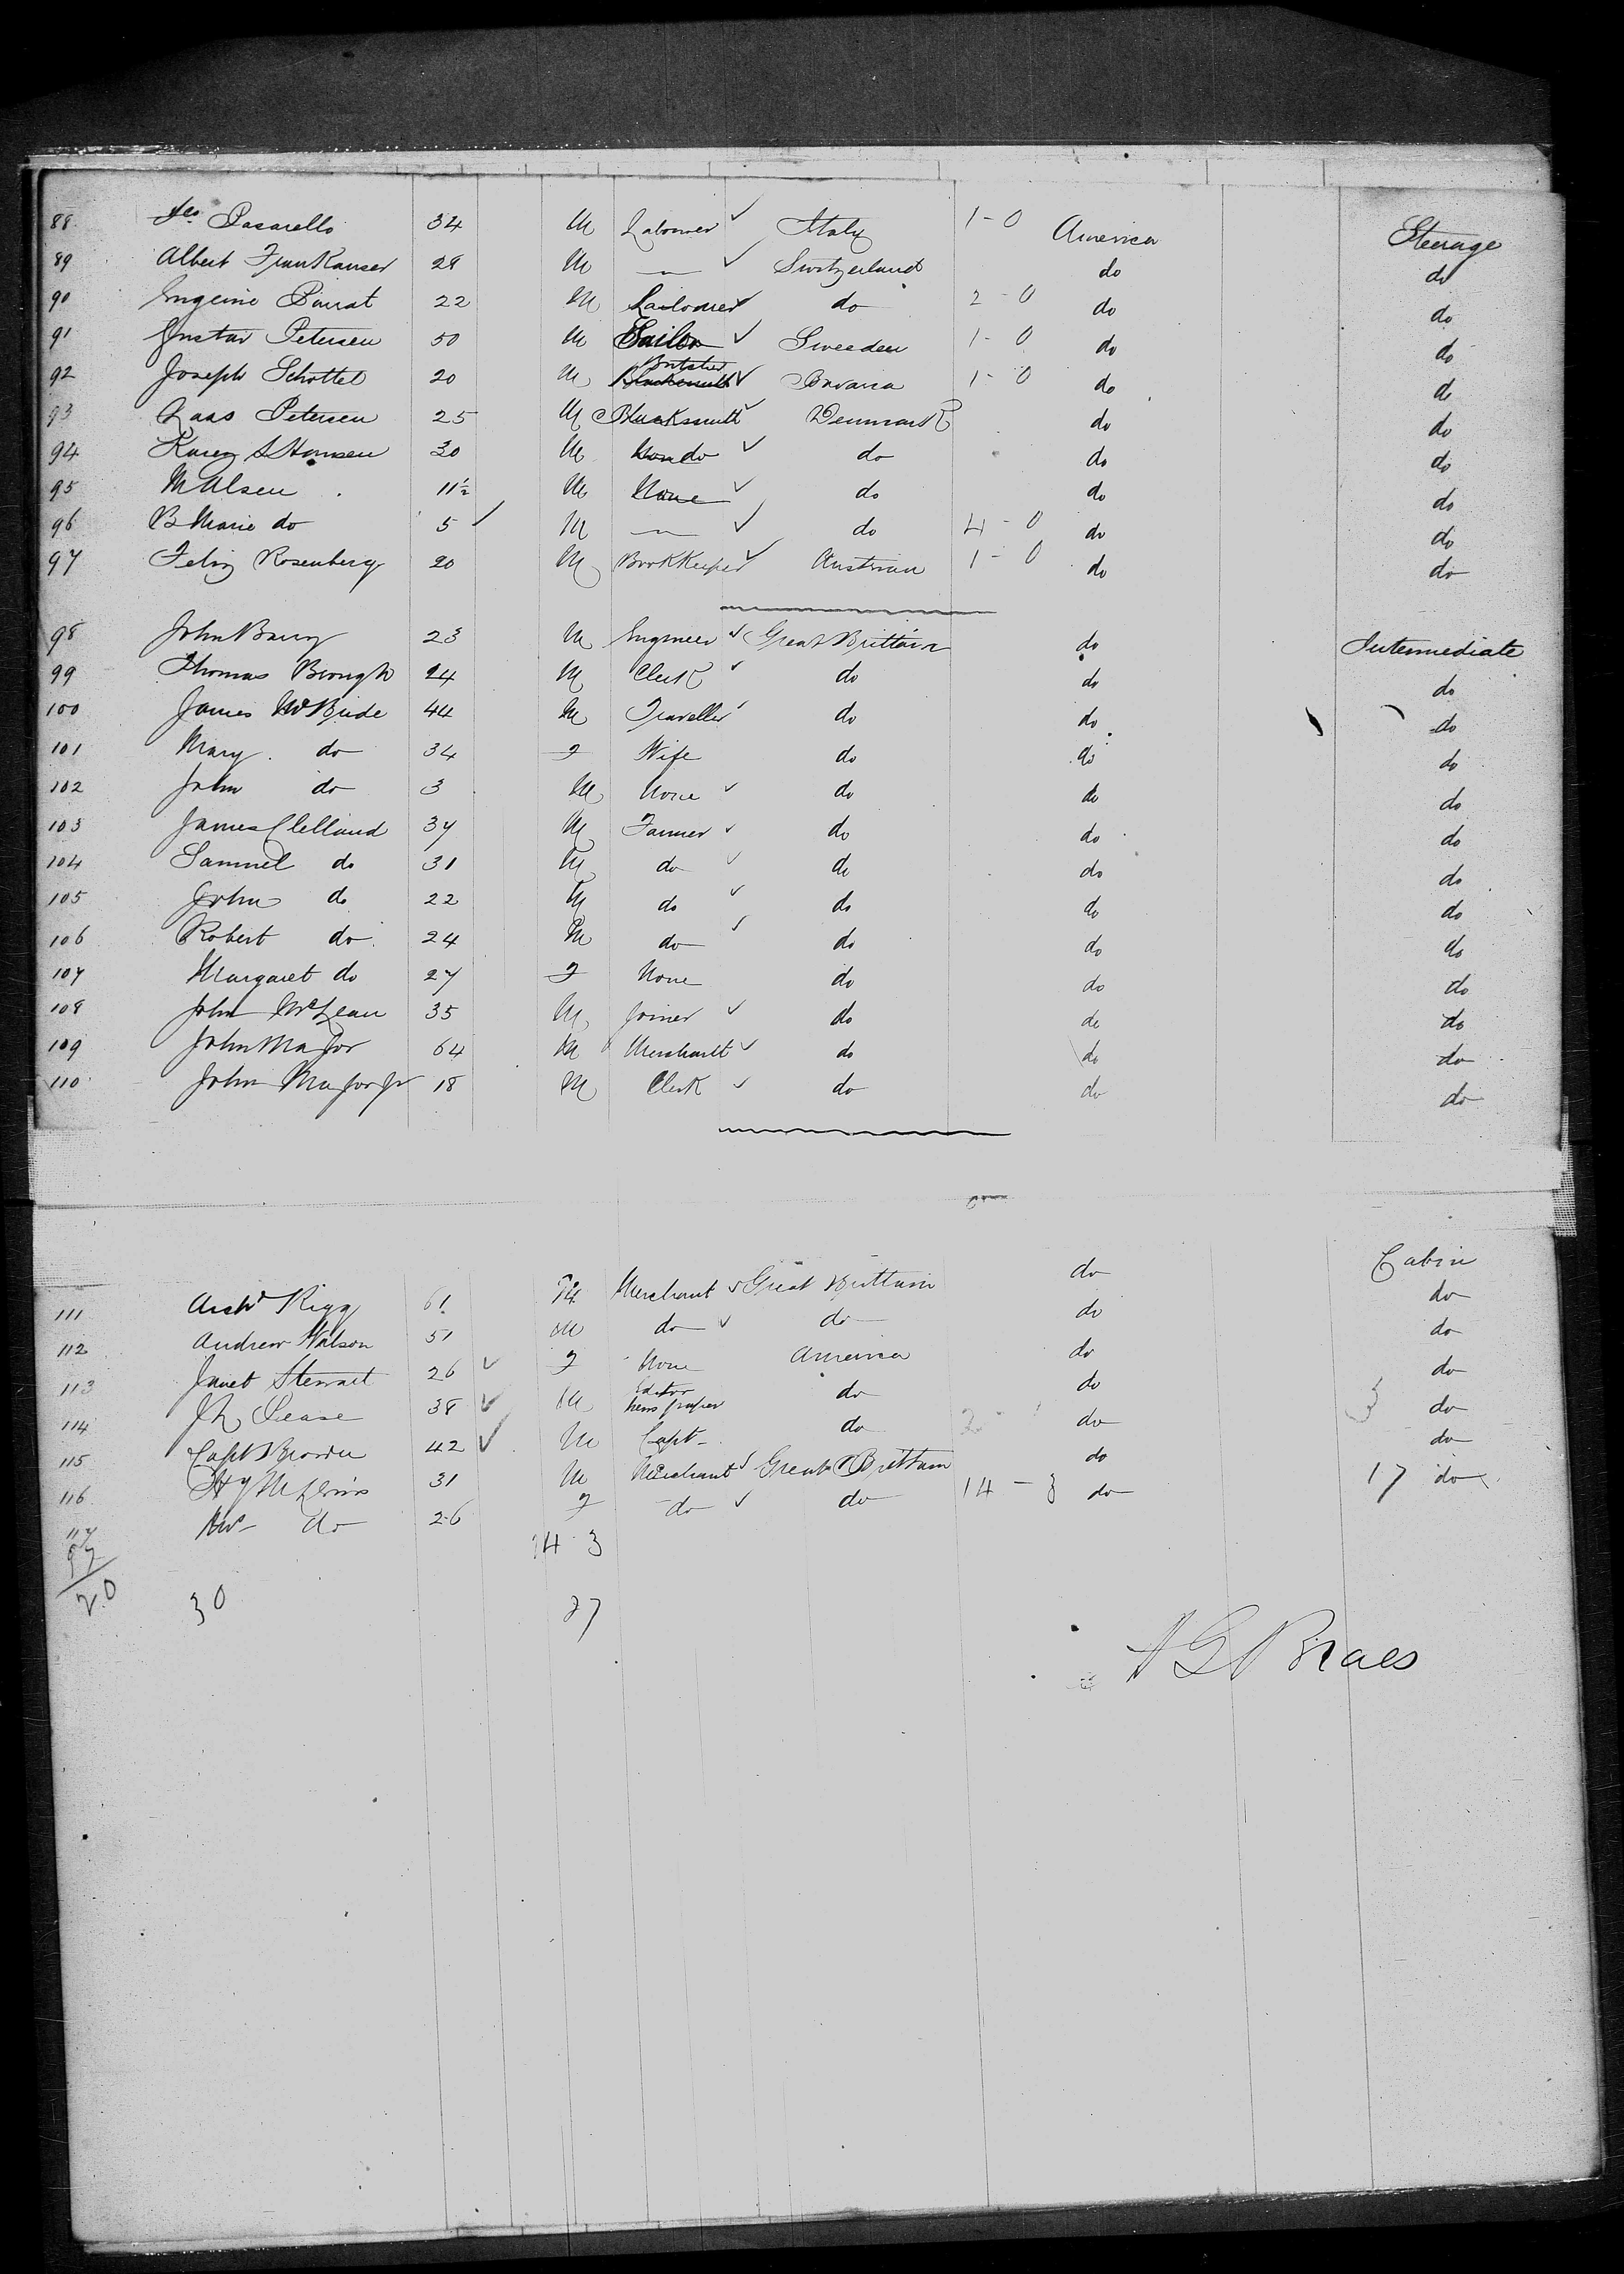 88 Pasarello 34 M Labourer ✓ Italy 1-0 America Steerage
89 Albert Frankauser 28 M — ✓ Switzerland do do
90 Engeine Parrat 22 M Labourer ✓ do 2-0 do do
91 Gustav Petersen 50 M Sailor ✓ Sweeden 1-0 do do
Butcher
92 Joseph Schottel 20 M Blacksmith ✓ Bavaria 1-0 do do
93 Laas Petersen 25 M Blacksmith ✓ Denmark do do
94 Hansen 30 M do ✓ do do do
95 M Olsen 11½ M None ✓ do do do
96 B Marie do 5 ✓ M — ✓ do 4-0 do do
97 Felix Rosenberg 20 M Bookkeeper ✓ Austrian 1-0 do do
98 John Barry 23 M Engineer ✓ Great Brittain do Intermediate
99 Thomas Brough 24 M Clerk ✓ do do do
100 James McBride 44 M Traveller ✓ do do do
101 Mary do 34 F Wife do do do
102 John do 3 M None ✓ do do do
103 James Clelland 37 M Farmer ✓ do do do
104 Samuel do 31 M do ✓ do do do
105 John do 22 M do ✓ do do do
106 Robert do 24 M do ✓ do do do
107 Margaret do 27 F None do do do
108 John McLean 35 M Joiner ✓ do do do
109 John Major 64 M Merchant ✓ do do do
110 John Major Jr 18 M Clerk ✓ do do do
111 Archd Rigg 61 M Merchant ✓ Great Brittain do Cabin
112 Andrew Watson 51 M do ✓ do do do
113 Janet Stewart 26 ✓ F None America do do
Editor
114 Pease 38 ✓ M News paper do do do
115 Capt Brown 42 ✓ M Capt do do do
116 31 M Merchant ✓ Great Brittain do do
117 Mrs do 26 F do ✓ do 14-3 do 17 do
97 14 3
20 30 27